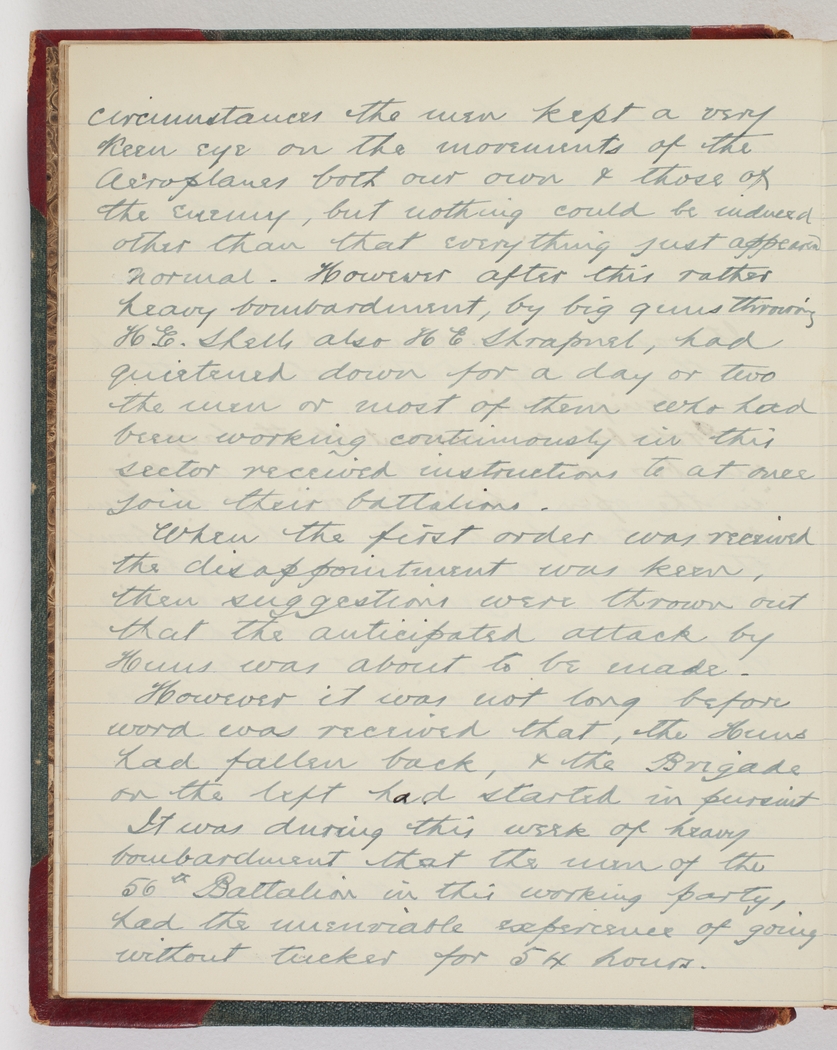 circumstances the men kept a very
keen eye on the movements of the
Aeroplanes both our own & those of
the enemy, but nothing could be induced
other than that everything just appeared
normal. However after this rather
heavy bombardment, by big guns throwing
H.E. Shells also H E Shrapnel, had
quietened down for a day or two
the men or most of them who had
been working continuously in this
sector received instructions to at once
join their battalions.
When the first order was received
the disappointment was keen,
then suggestions were thrown out
that the anticipated attack by
Huns was about to be made.
However it was not long before
word was received that, the Huns
had fallen back, & the Brigade
on the left had started in pursuit
It was during this week of heavy
bombardment that the men of the
56th Battalion in this working party,
had the unenviable experience of going
without tucker for 54 hours.